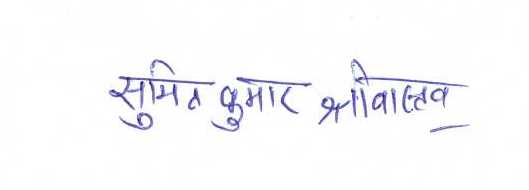 सुमित कुमार श्रीवास्तव